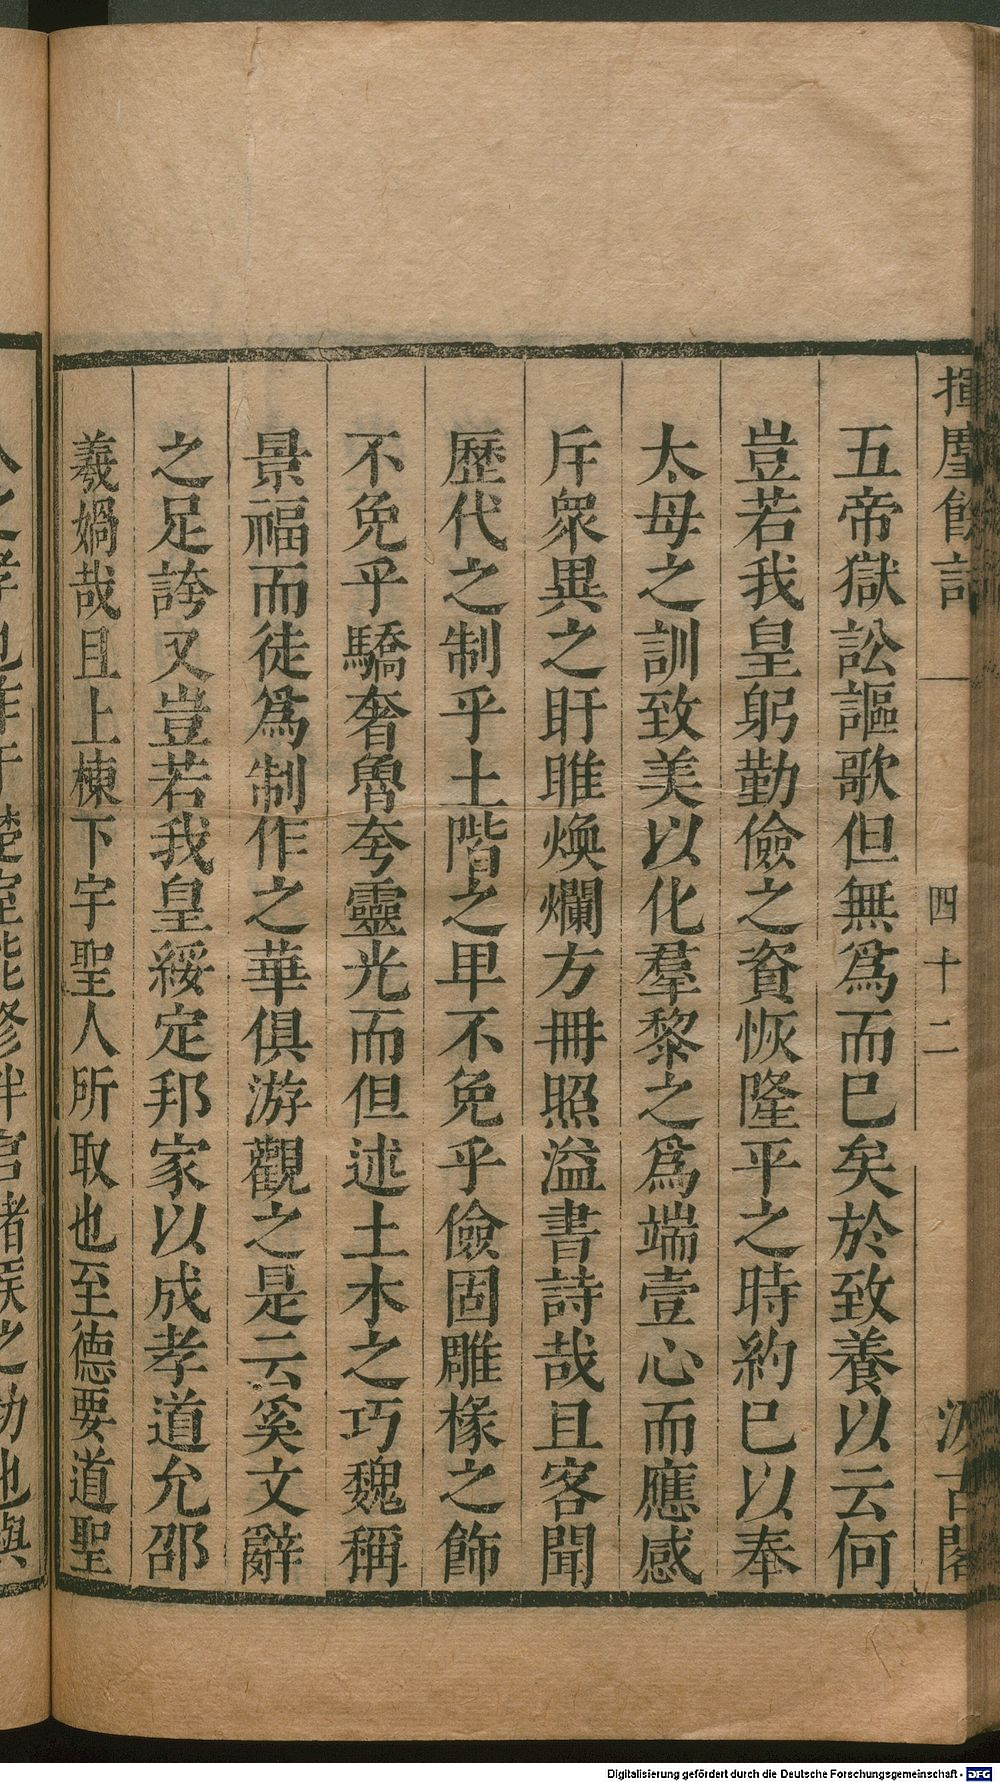 揮麈餘話
四十二
汲古閣
五帝獄訟謳歌但無爲而已矣於致養以云何
豈若我皇躬勤儉之資恢隆平之時約已以奉
太母之訓致美以化羣黎之爲端壹心而應感
斥衆異之盱睢煥爛方冊照溢書詩哉且客聞
歷代之制乎土階之卑不免乎儉固雕椽之飾
不免乎驕奢魯夸靈光而但述土木之巧魏稱
景福而徒爲制作之華俱游觀之是云奚文辭
之足誇又豈若我皇綏定邦家以成孝道允邵
羲媧哉且上棟下宇聖人所取也至德要道聖
Digitalisierung gefördert durch die Deutsche Forschungsgemeinschaft - DFG